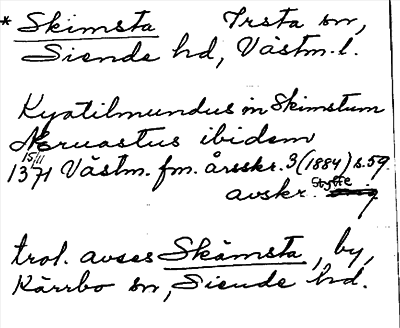 * Skimsta Irsta sn,
Siende hd, Västm. l.
Kyatilmundus in Skimstum
Neruastus ibidem
15/11
1371 Västm. fm. årsskr. 3 (1884) s. 59.
avskr. Styffe
trol. avses Skämsta, by,
Kärrbo sn, Siende hd.